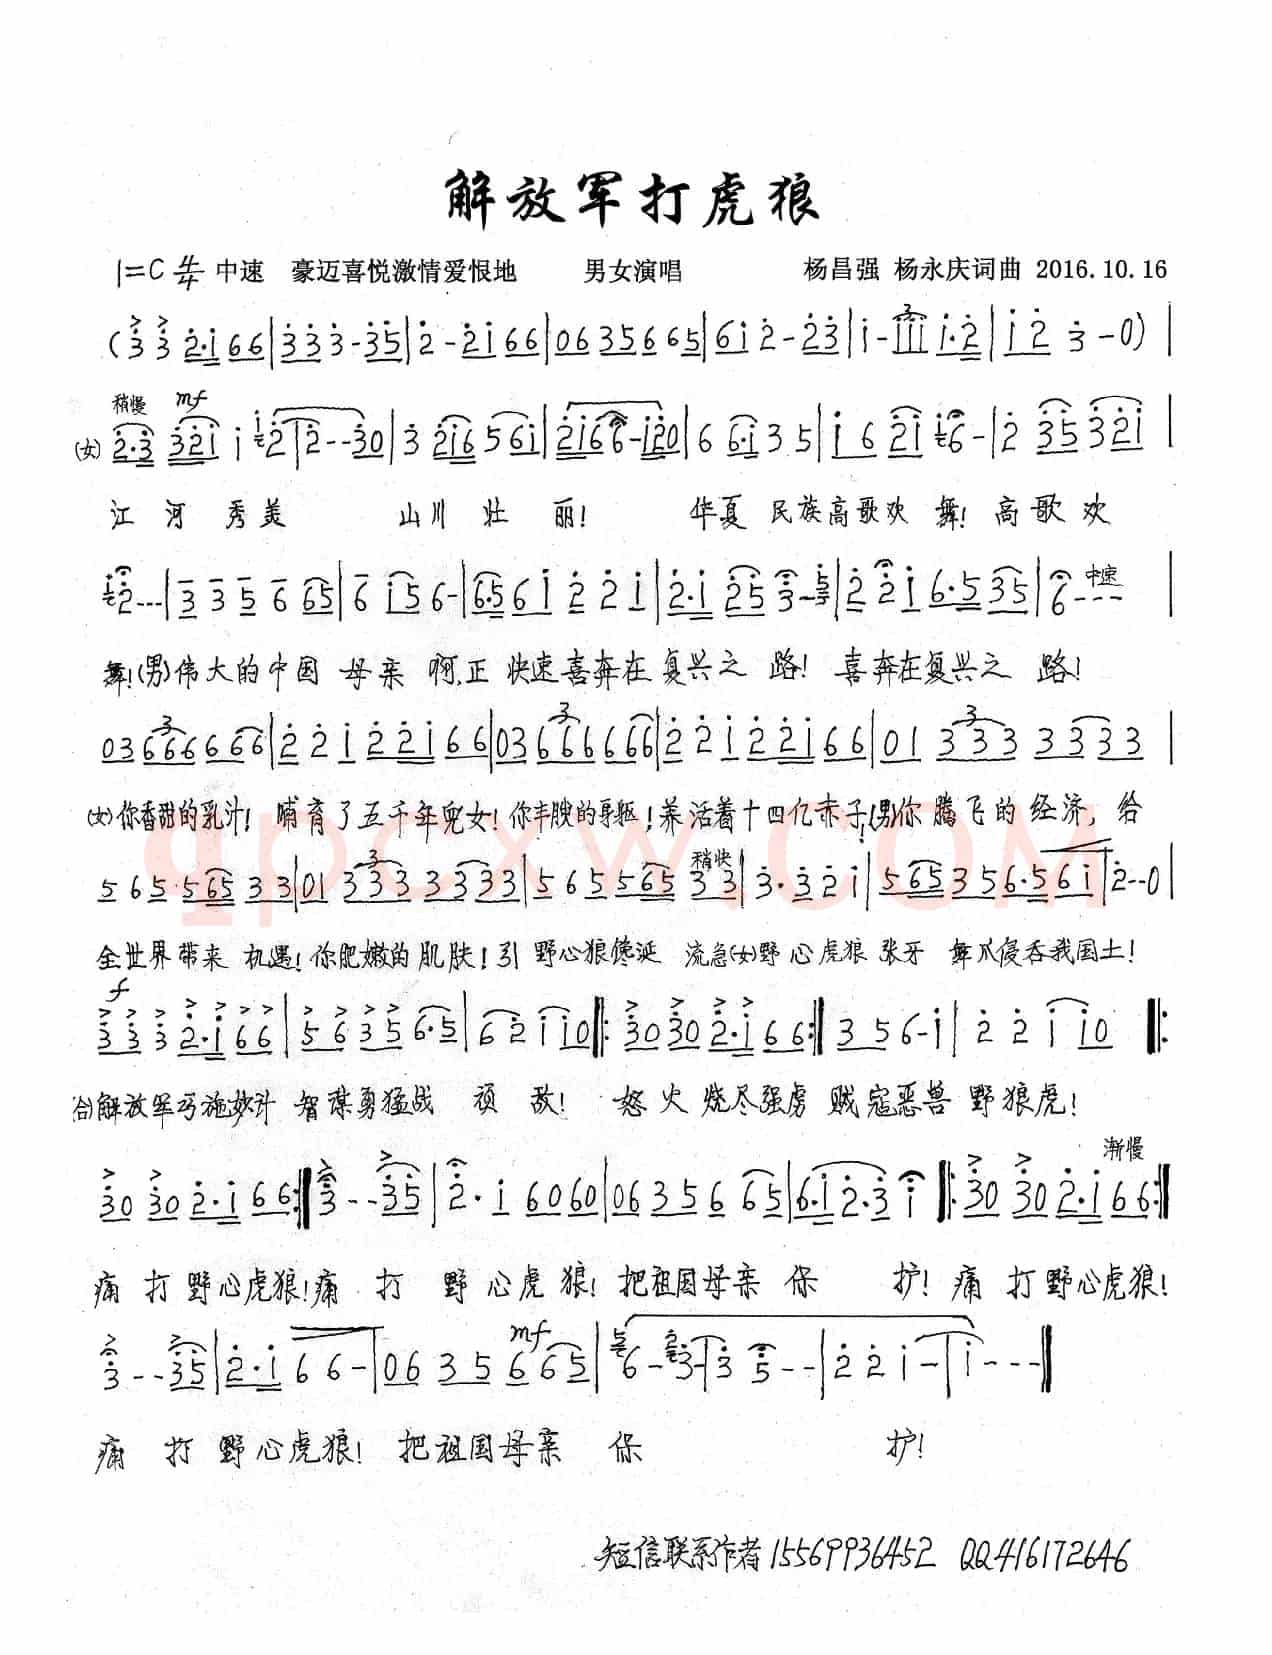 解放军打虎狼
1=C 4/4 中速 豪迈喜悦激情爱恨地 男女演唱 杨昌强 杨永庆词曲 2016.10.16
(3 3 2·1 66|333-35|2-2166|06356 65|61 2-23|1-111 1·2|1 2 3-0)|
稍慢 mf
(女) 2·3 321 1 2 2--30|3 216 5 61|2166-120|6 6·1 3 5|1 6 21 6-|2 35 321|
江河秀美 山川壮丽! 华夏民族高歌欢舞! 高歌欢
2---|3 3 5 6 65|6 15 6-|6·5 6 1 2 2 1|2·1 25 3-|2 2 1 6·5 35|6--- 中速|
舞!(男)伟大的中国母亲啊,正快速喜奔在复兴之路! 喜奔在复兴之路!
03 666 66 66|2 21 22166|03 666 6666|2 21 22166|01 333 3333|
(女)你香甜的乳汁! 哺育了五千年儿女! 你丰腴的身躯! 养活着十四亿赤子!(男)你腾飞的经济, 给
5 65 565 33|01 333 3333|5 65 565 33 稍快|3·3 21|56535 6·561|2--0
全世界带来机遇! 你肥嫩的肌肤! 引野心狼馋涎流急(女)野心虎狼张牙舞爪侵吞我国土!
f
3 3 3 2·1 66|5 6 35 6·5|6 2 1 10|:30 30 2·1 66:|35 6-1|2 2 1 10|:
(合)解放军巧施妙计 智谋勇猛战顽敌! 怒火烧尽强虏 贼寇恶兽野狼虎!
渐慢
30 30 2·1 66:|3--35|2·1 6060|06356 65|6·1 2·3 1|:30 30 2·1 66:|
痛打野心虎狼! 痛打野心虎狼! 把祖国母亲保护! 痛打野心虎狼!
mf
3--35|2·1 66-|06 35 6 65|6-3-3 5--|2 2 1-1---|
痛打野心虎狼! 把祖国母亲保 护!
短信联系作者15569936452 QQ416172646
qpcxw.COM